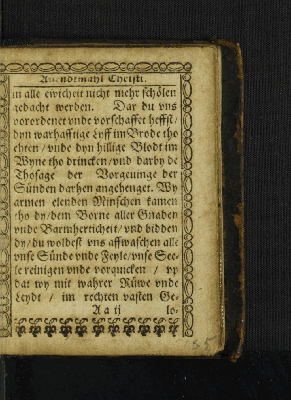 Auendtmahl Christi.
in alle ewicheit nicht mehr schölen
gedacht werden. Dar du vns
vorordenet vnde vorschaffet heffst/
dyn warhafftige Lyff im Brode tho
ethen / vnde dyn hillige Blodt im
Wyne tho drincken / vnd darby de
Thosage der Vorgeuinge der
Sünden darhen angehenget. Wy
armen elenden Minschen kamen
tho dy / dem Borne aller Gnaden
vnde Barmherticheit / vnd bidden
dy / du woldest vns affwaschen alle
vnse Sünde vnde Feyle / vnse See-
le reinigen vnde vorquicken / vp
dat wy mit wahrer Rüwe vnde
Leydt / im rechten vasten Ge-
A a ij lo-